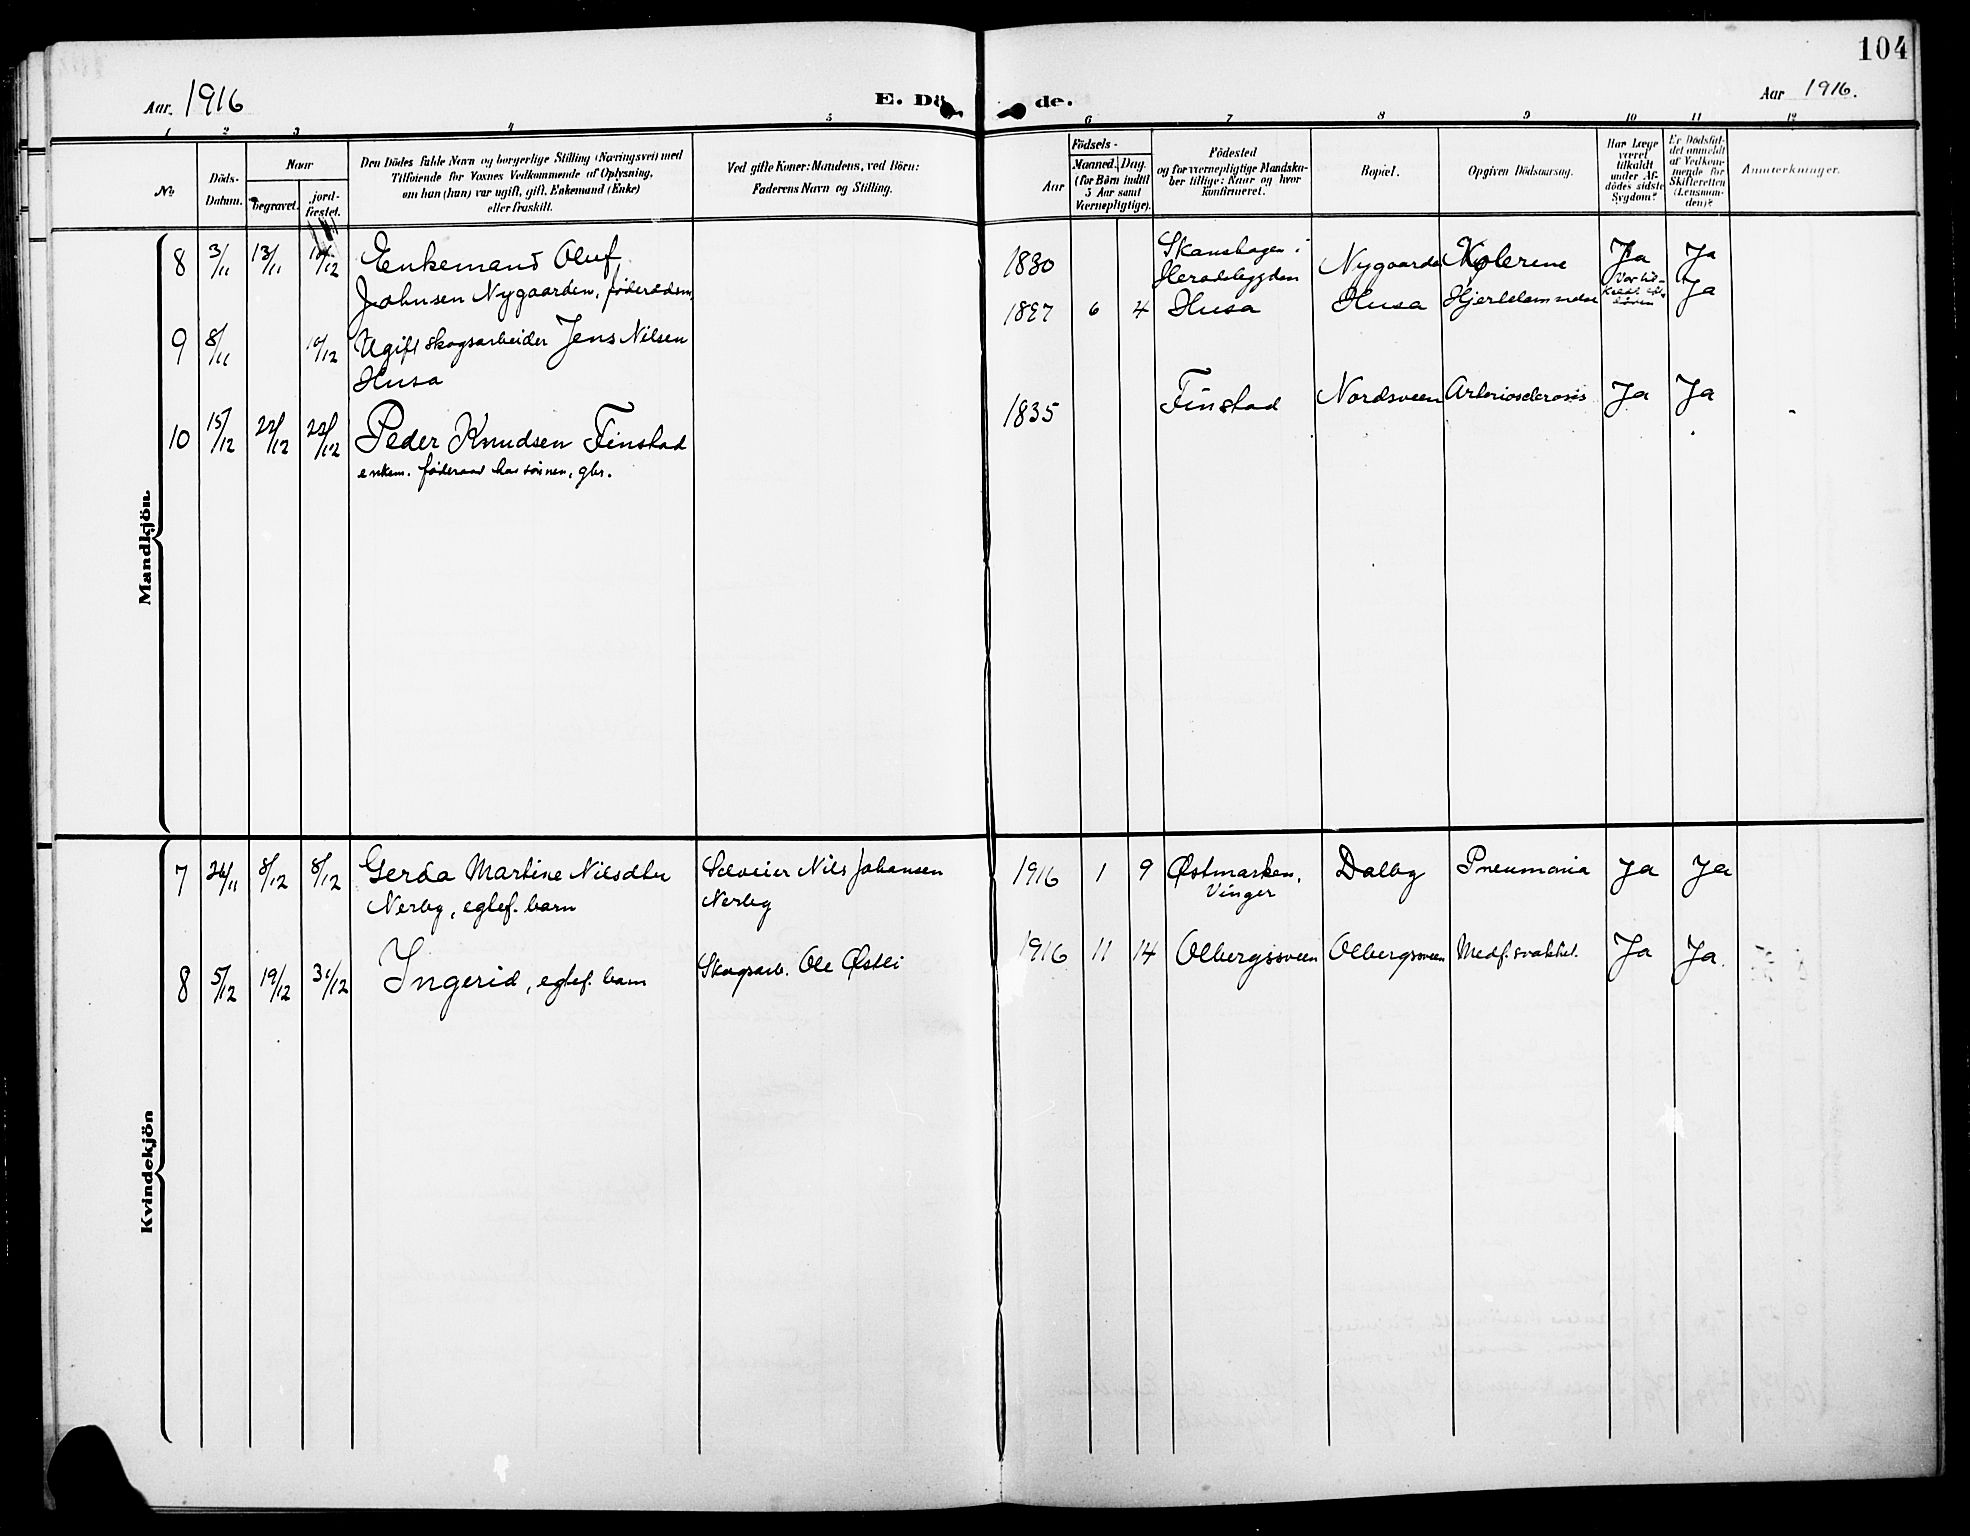 104
Aar. 1916
E. Dö
de.
Aar 1916.
1 2 3 4 5 6 7 8 9 10 11 12
No
Döds-
Datum.
Naar
begravet.
jord-
fæstet.
Den Dödes fulde Navn og borgerlige Stilling (Næringsvei) med
Tilföiende for Voxnes Vedkommende af Oplysning,
om han (hun) var ugift, gift, Enkemand (Enke)
eller fraskilt.
Ved gifte Koner: Mandens, ved Börn:
Faderens Navn og Stilling.
Födsels-
Aar
Maaned. Dag.
(for Börn indtil
5 Aar samt
Værnepligtige).
Födested
og for værnepligtige Mandska-
ber tillige: Naar og hvor
konfirmeret.
Bopæl.
Opgiven Dödsaarsag.
Har Læge
været
tilkaldt
under Af-
dödes sidste
Sygdom?
Er Dödsfal-
det anmeldt
af Vedkom-
mende for
Skifteretten
(Lensman-
den)?
Anmerkninger.
Mandkjön
8 3/11 13/11 Enkemand Oluf
Johnsen Nygaarden,
1830 Skanshagen i
Nygaarden Ja Ja
9 8/11 10/12 Ugift skogsarbeider Jens Nilsen
Husa
1897 6 4 Husa Husa Ja
10 15/12 22/12 22/12 Peder Knudsen Finstad
enkem. föderaad hos sönnen, gbr.
1835 Finstad Nordsveen Arteriosclerosis Ja Ja
Kvindekjön
7 26/11 8/12 8/12 Gerda Martine Nilsdtr
Nerby, egtef. barn
Selveier Nils Johansen
Nerby
1916 1 9 Østmarken,
Vinger
Dalby Pneumonia Ja Ja
8 5/12 19/12 31/12 Ingerid, egtef. barn
Skogsarb. Ole Østli
1916 11 14 Olbergssveen Olbergsveen Medf. svakhet. Ja Ja.